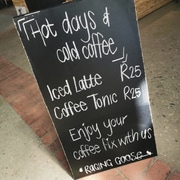 Hot days &
cold coffee
Iced Latte R25
Coffee Tonic R25
Enjoy your
coffee fix with us
RAGING GOOSE